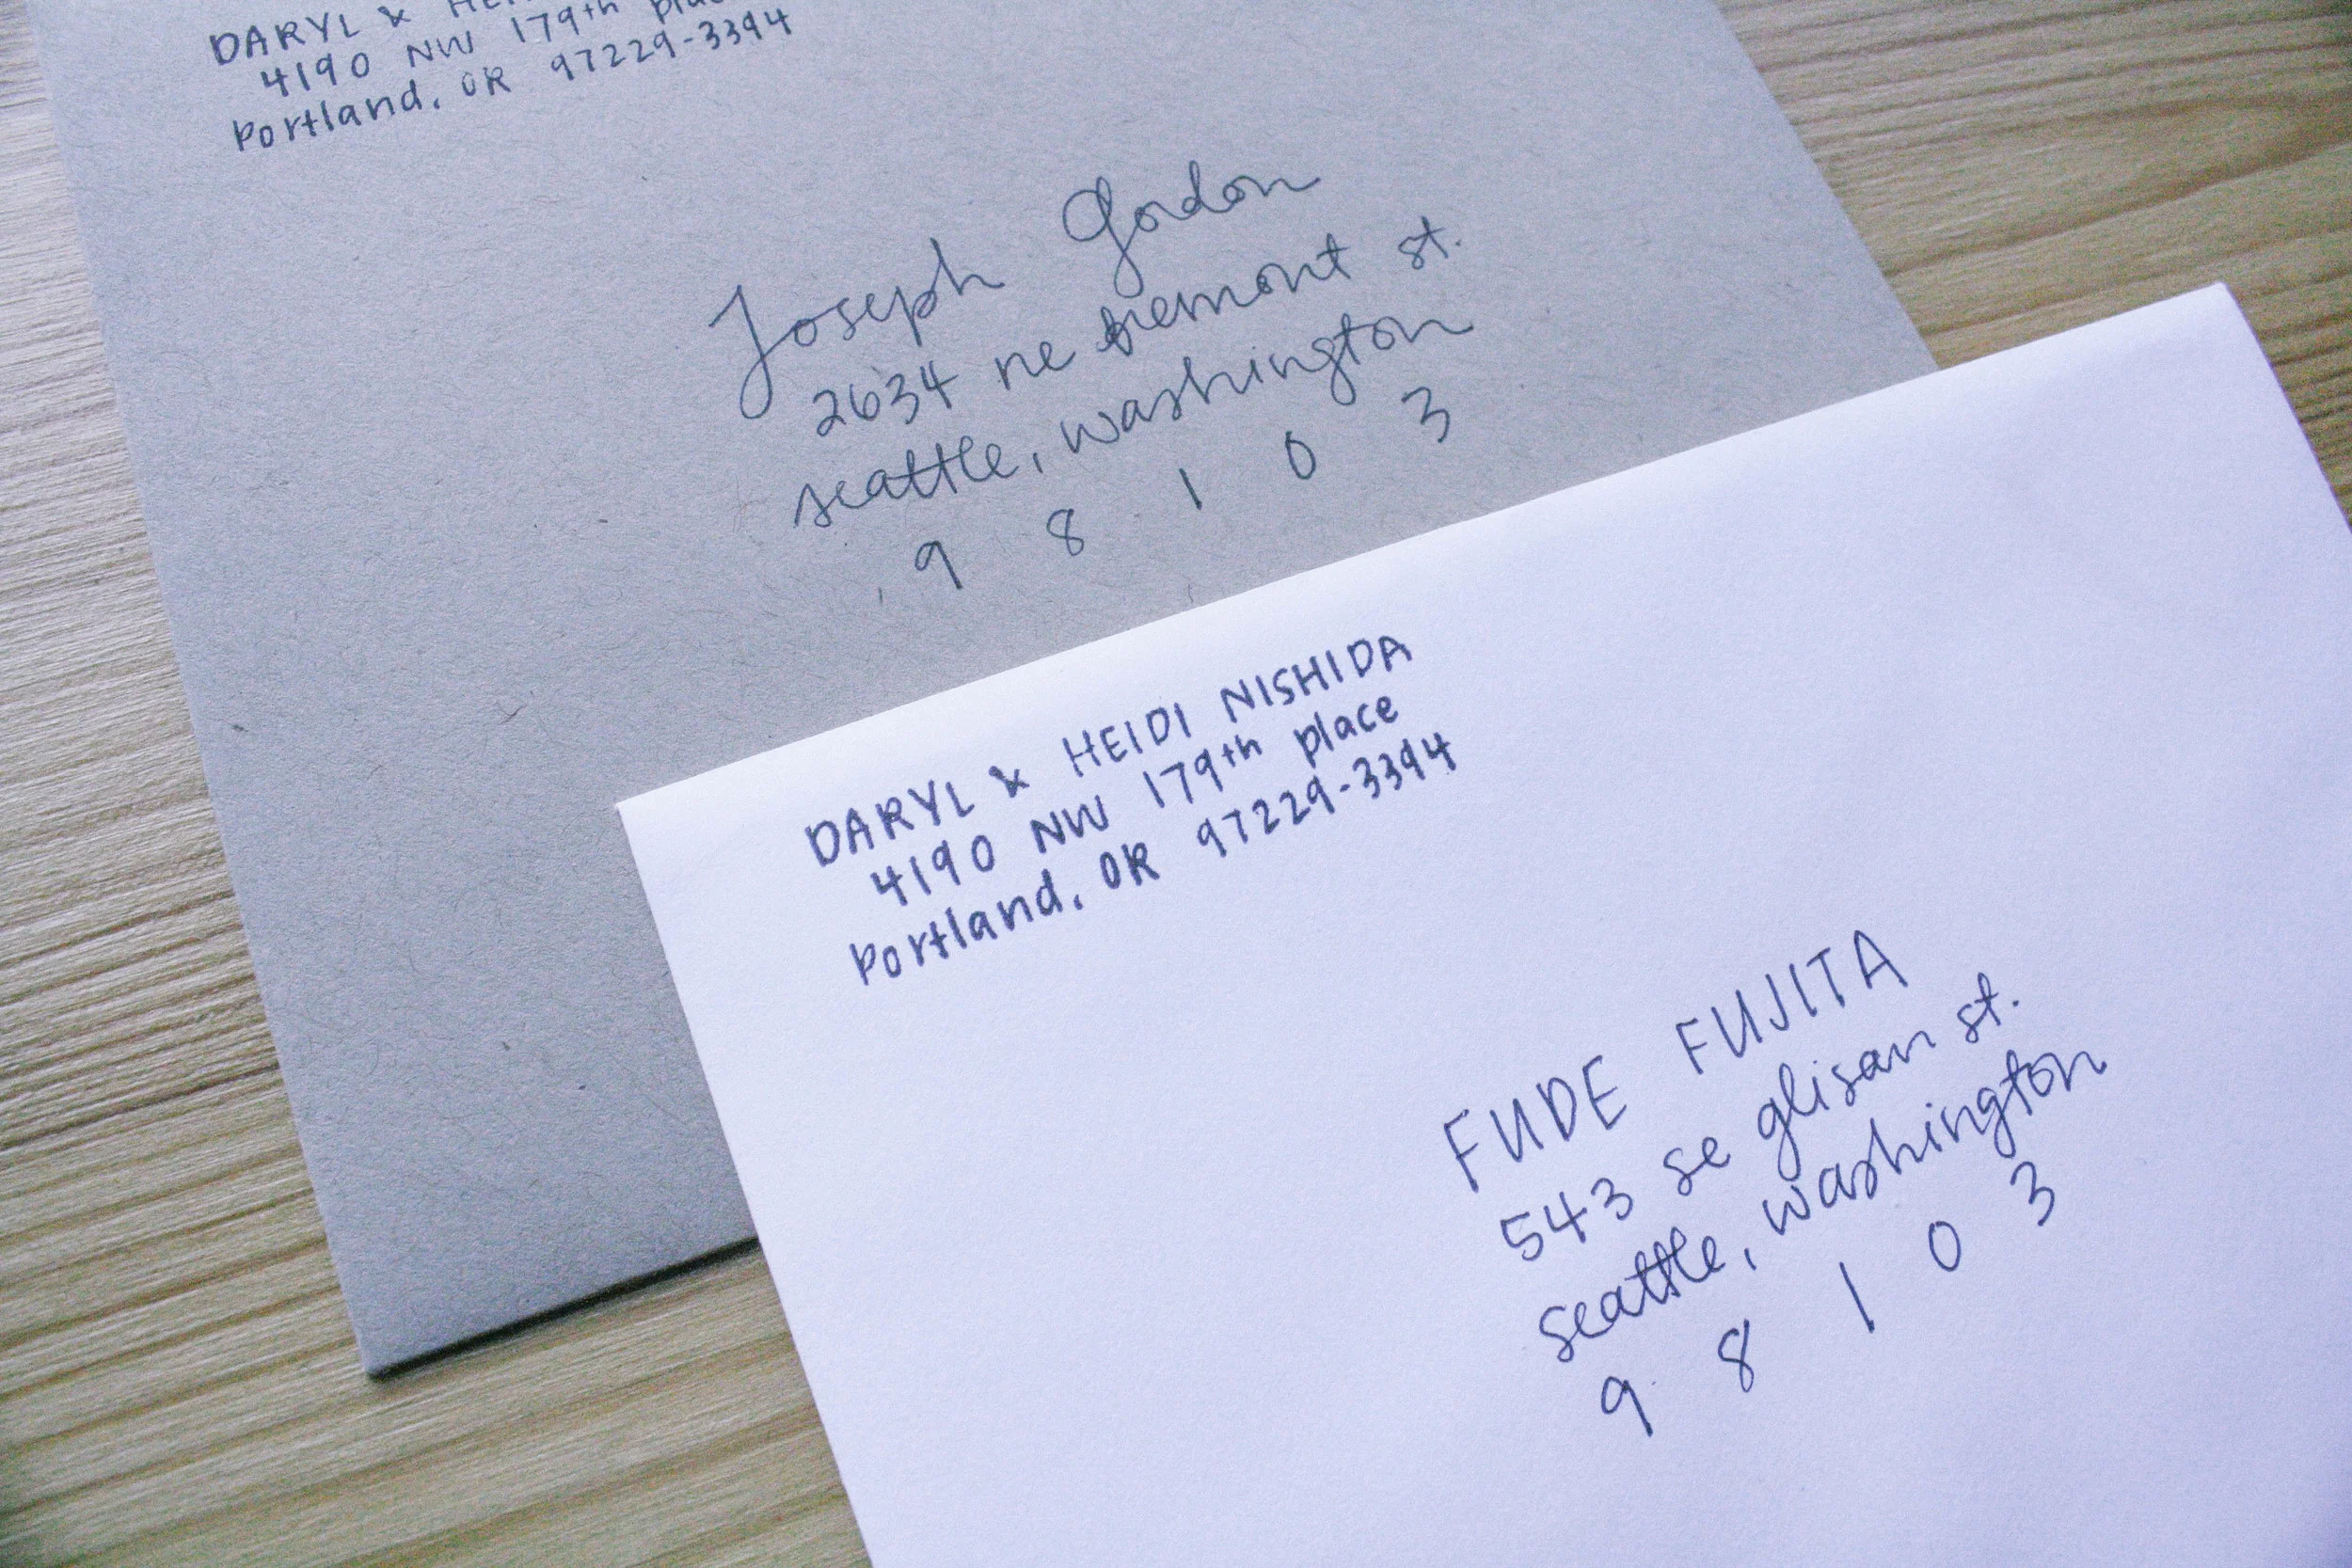 DARYL &
4190 NW 179th
Portland, OR 97229-3394
Joseph Gordon
2634 ne fremont st.
seattle, washington
9 8 1 0 3
DARYL & HEIDI NISHIDA
4190 NW 179th place
Portland, OR 97229-3394
FUDE FUJITA
543 se glisan st.
seattle, washington
9 8 1 0 3